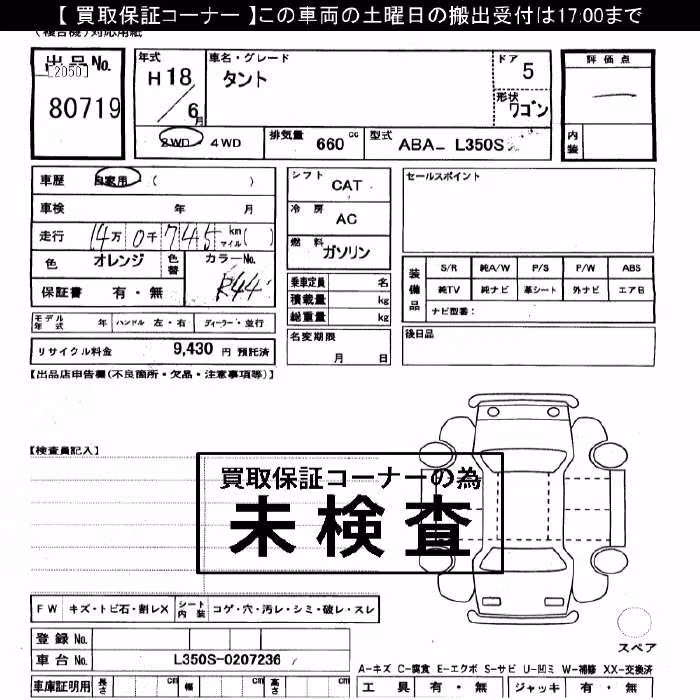 【 買取保証コーナー 】この車両の土曜日の搬出受付は17:00まで
出品No. [2050] 80719
年式 H18 / 6月
車名・グレード タント
ドア 5
形状 ワゴン
評価点
内装
2WD ・ 4WD
排気量 660 cc
型式 ABA- L350S
車歴 自家用 ( )
車検 年 月
走行 14万 0千 745 km マイル ( )
色 オレンジ 色替 カラーNo. R44
保証書 有・無
シフト CAT
冷房 AC
燃料 ガソリン
乗車定員 名
積載量 kg
総重量 kg
名変期限 月 日
セールスポイント
装備品
S/R 純A/W P/S P/W ABS
純TV 純ナビ 革シート 外ナビ エアB
ナビ型番:
後日品
モデル年式 年 ハンドル 左・右 ディーラー・並行
リサイクル料金 9,430 円 預託済
【出品店申告欄(不良箇所・欠品・注意事項等)】
【検査員記入】
買取保証コーナーの為
未検査
FW キズ・トビ石・割レX シート内装 コゲ・穴・汚レ・シミ・破レ・スレ
登録No.
車台No. L350S-0207236
スペア
A-キズ C-腐食 E-エクボ S-サビ U-凹ミ W-補修 XX-交換済
車庫証明用 長さ cm 幅 cm 高さ cm
工具 有・無 ジャッキ 有・無